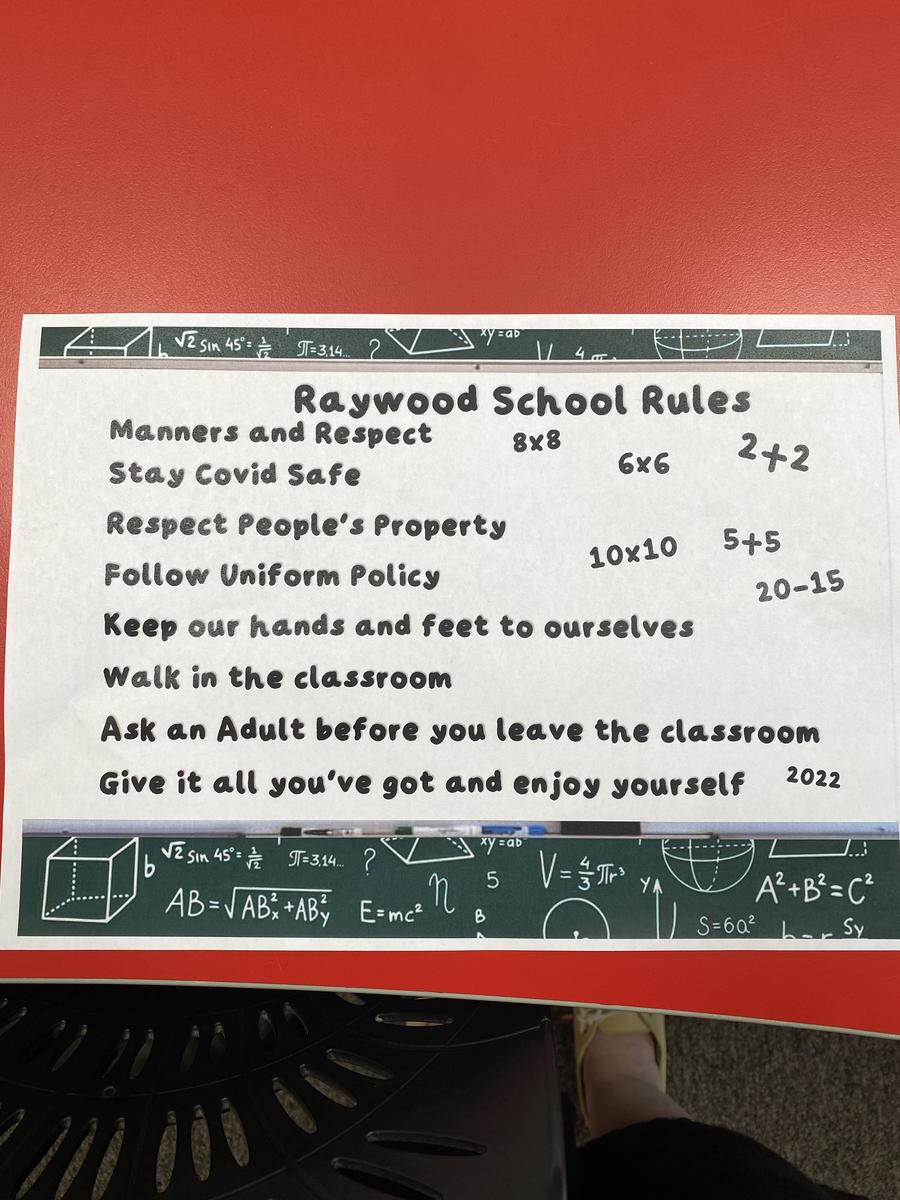 √2 Sin 45°= 2/√2 π=3,14... ? xy=ab
b V 4 π
Raywood School Rules
Manners and Respect 8x8
6x6 2+2
Stay Covid Safe
Respect People's Property
10x10 5+5
Follow Uniform Policy 20-15
Keep our hands and feet to ourselves
Walk in the classroom
Ask an Adult before you leave the classroom
Give it all you've got and enjoy yourself 2022
b √2 Sin 45°= 2/√2 π=3,14... ? xy=ab
n 5 V=4/3πr³ A²+B²=C²
AB=√AB²x+AB²y E=mc² B y S=6a² Sy